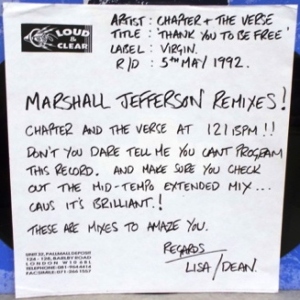 LOUD
&
CLEAR
ARTIST: CHAPTER + THE VERSE
TITLE: 'THANK YOU TO BE FREE'
LABEL: VIRGIN.
R/D: 5TH MAY 1992.
MARSHALL JEFFERSON REMIXES!
CHAPTER AND THE VERSE AT 121 BPM!!
DON'T YOU DARE TELL ME YOU CANT PROGRAM
THIS RECORD. AND MAKE SURE YOU CHECK
OUT THE MID-TEMPO EXTENDED MIX...
CAUS IT'S BRILLIANT.!
THESE ARE MIXES TO AMAZE YOU.
REGARDS
LISA/DEAN.
UNIT 32, PALLMALL DEPOSIT
124 - 128, BARLBY ROAD
LONDON W10 6BL